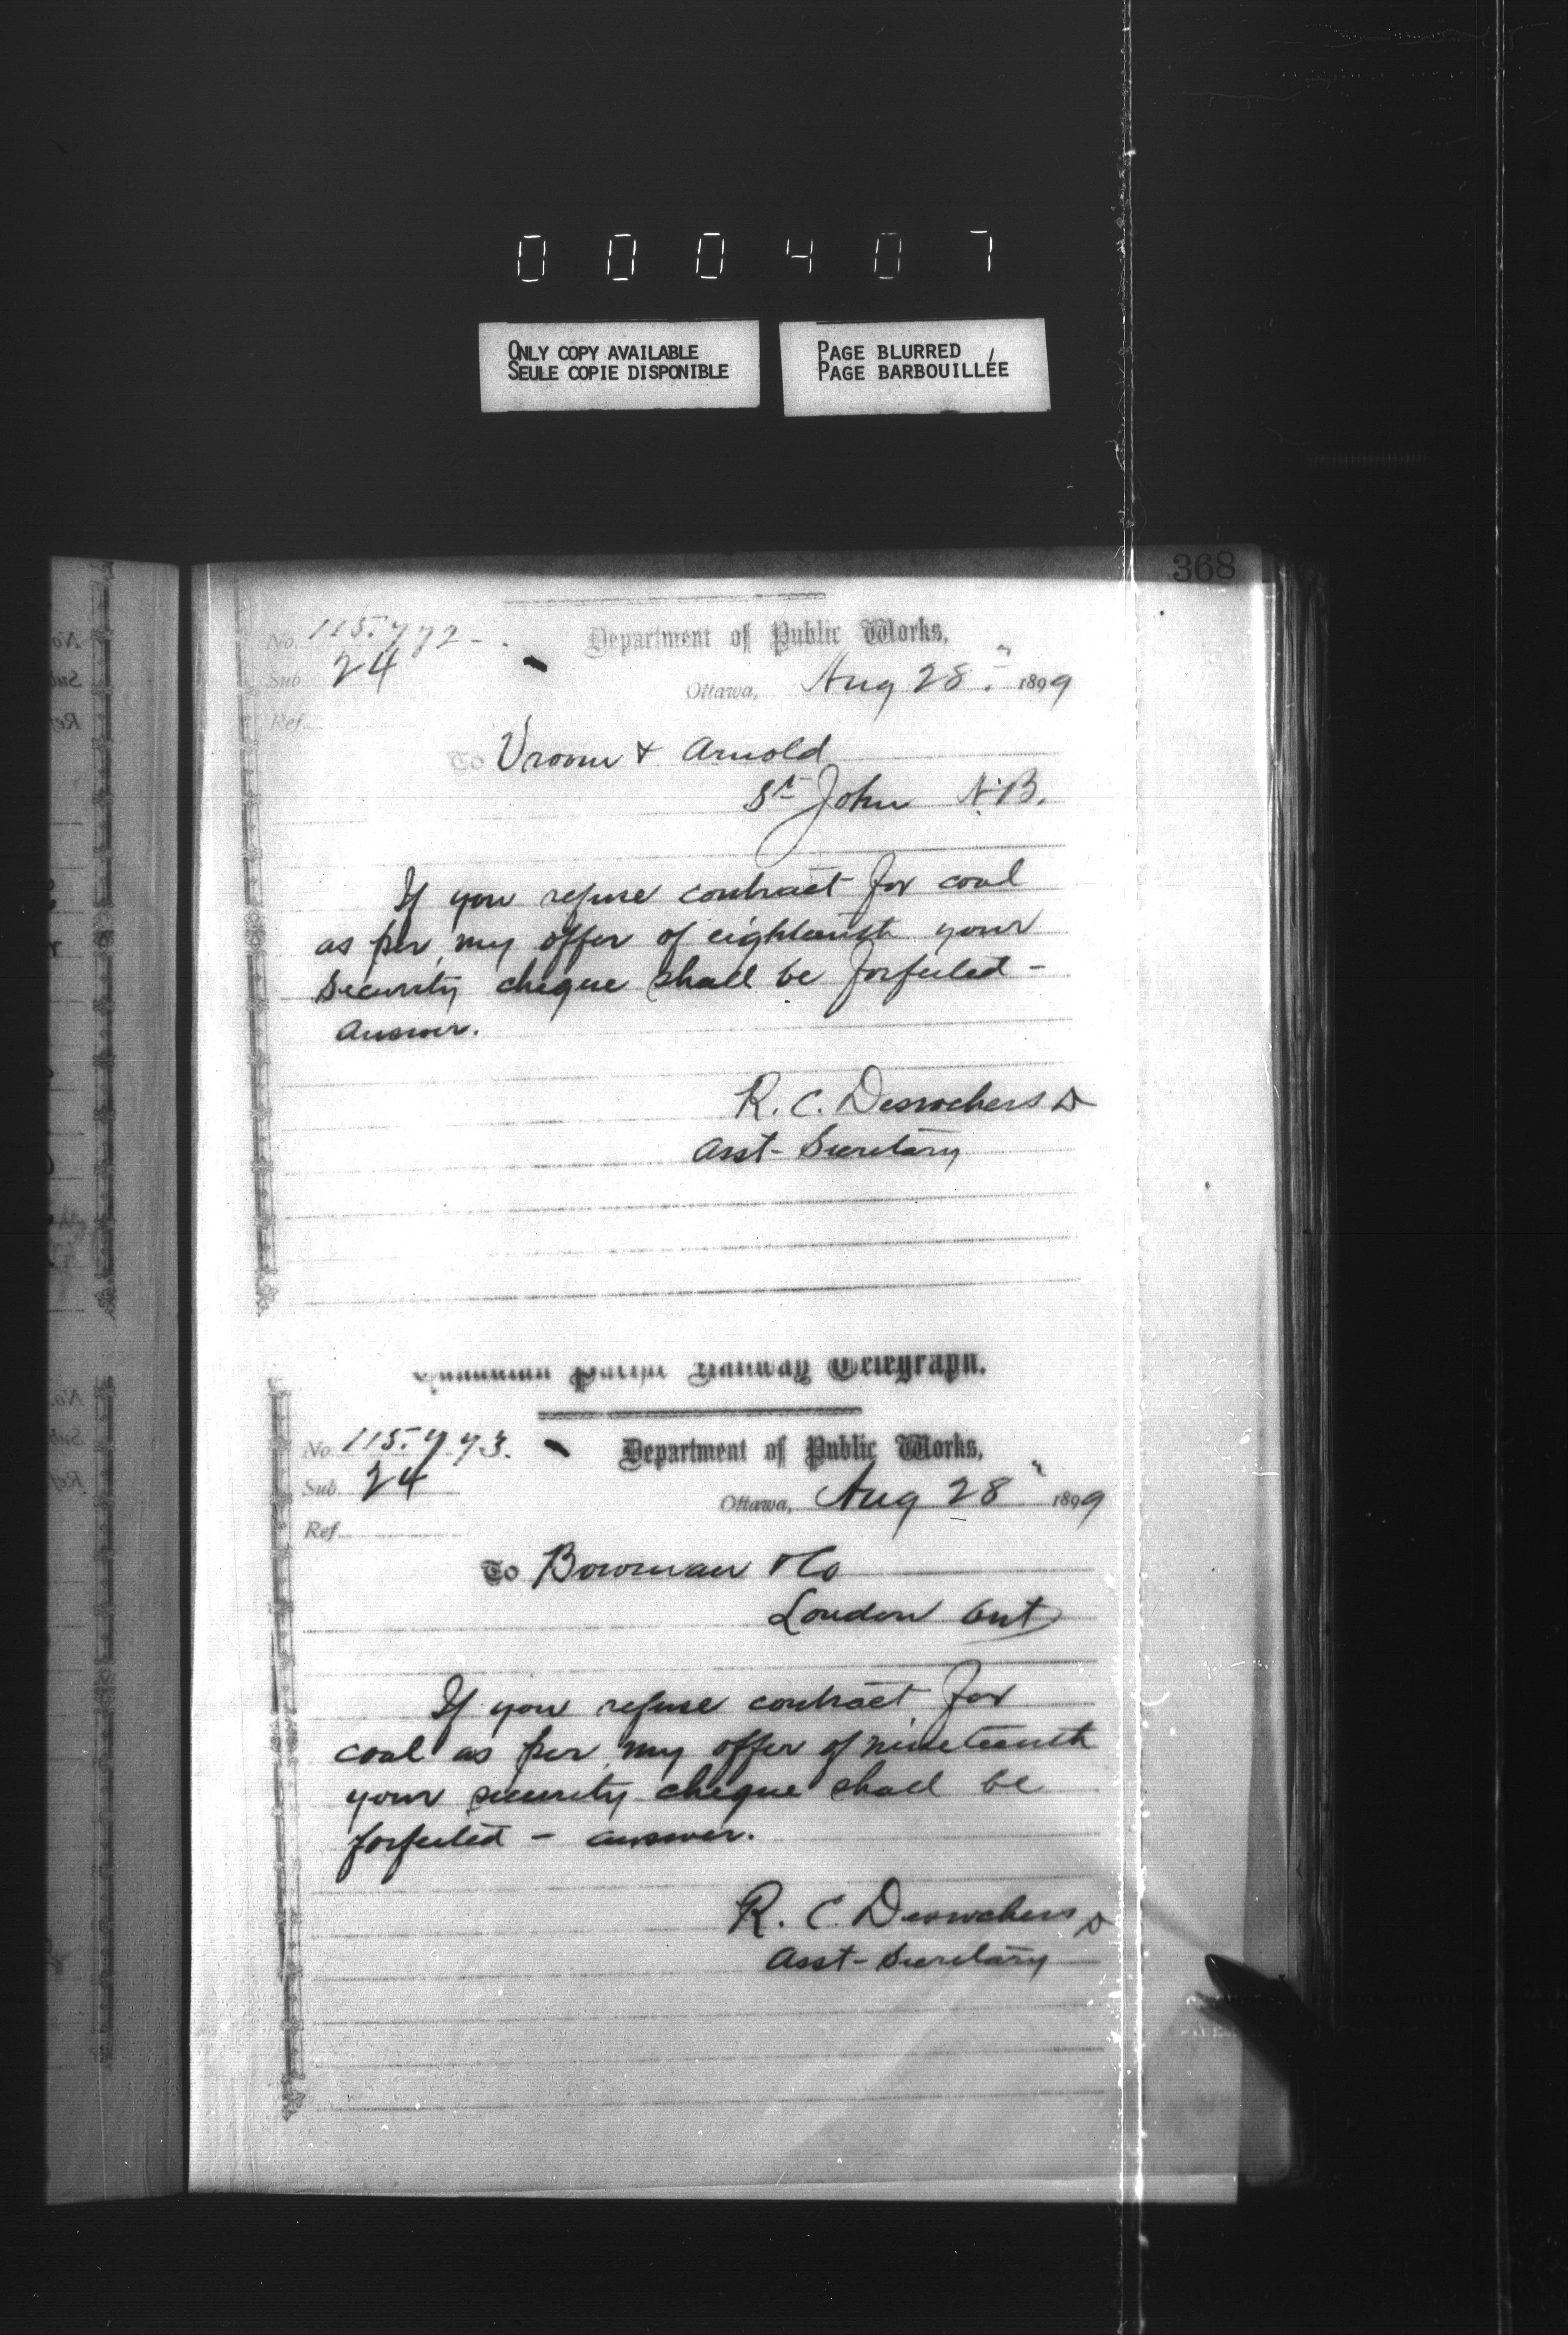 000407
ONLY COPY AVAILABLE
SEULE COPIE DISPONIBLE
PAGE BLURRED
PAGE BARBOUILLÉE
368
No. 115.772-
Department of Public Works,
Sub 24
Ottawa, Aug 28" 1899
Ref.
To Vroom & Arnold
St John N.B.
If you refuse contract for coal
as per my offer of eighteenth your
security cheque shall be forfeited -
answer.
R. C. Desrochers D
Asst- Secretary
Canadian Pacific Railway Telegraph.
No. 115.773.
Department of Public Works,
Sub. 24
Ottawa, Aug 28" 1899
Ref.
To Bowman & Co
London Ont
If you refuse contract for
coal as per my offer of nineteenth
your security cheque shall be
forfeited - answer.
R. C. Desrochers D
Asst- Secretary